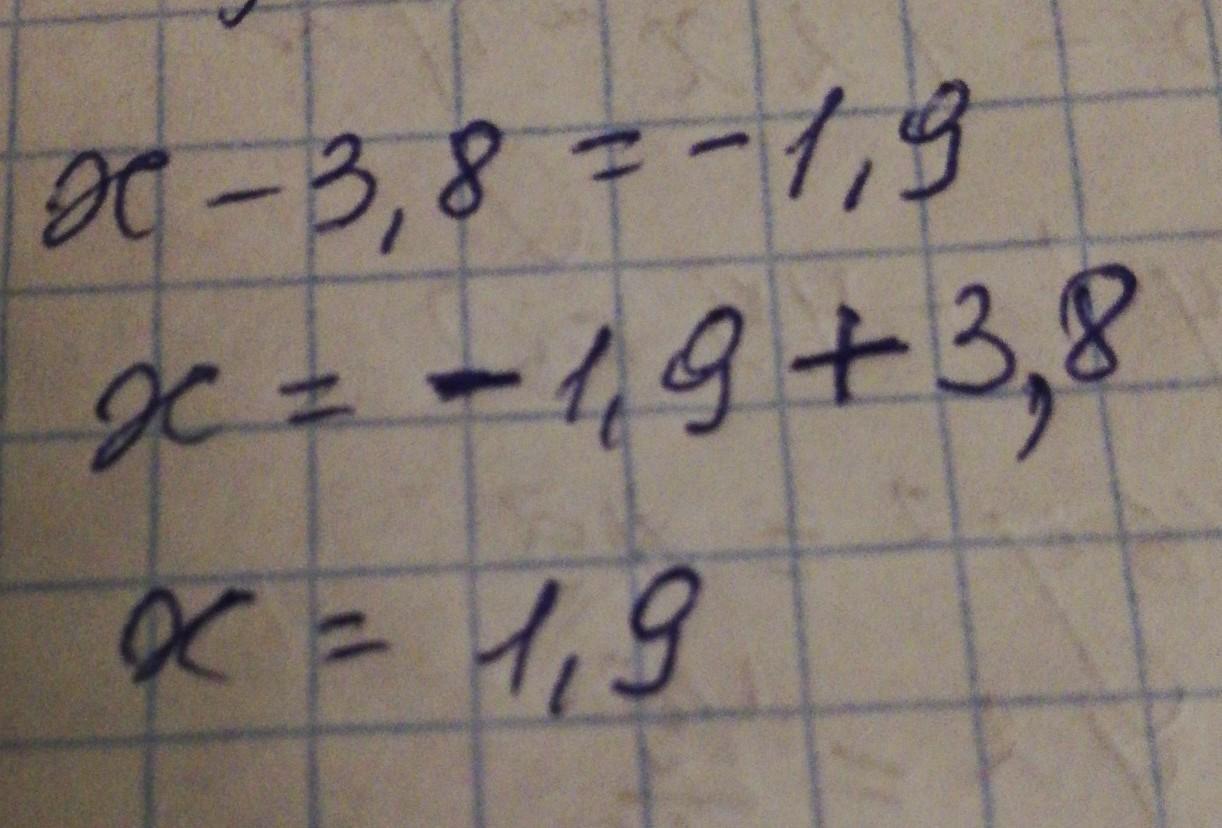 x - 3,8 = - 1,9
x = - 1,9 + 3,8
x = 1,9